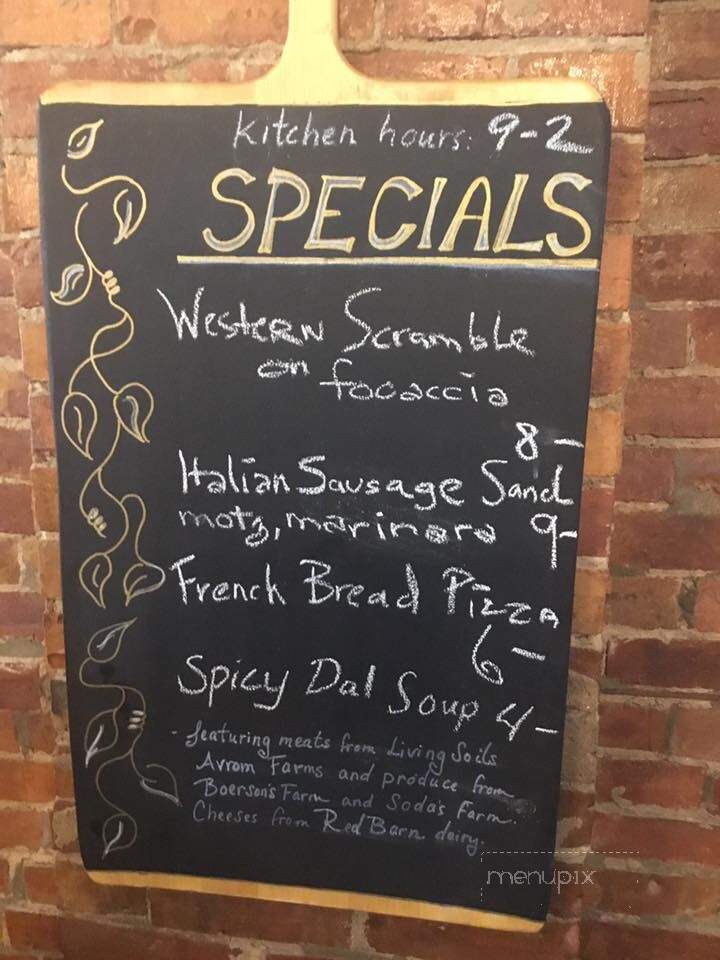 Kitchen hours: 9-2
SPECIALS
Western Scramble
on focaccia
8-
Italian Sausage Sand
motz, marinara 9-
French Bread Pizza
6-
Spicy Dal Soup 4-
- featuring meats from Living Soils
Avrom Farms and produce from
Boerson's Farm and Soda's Farm.
Cheeses from Red Barn dairy.
menupix